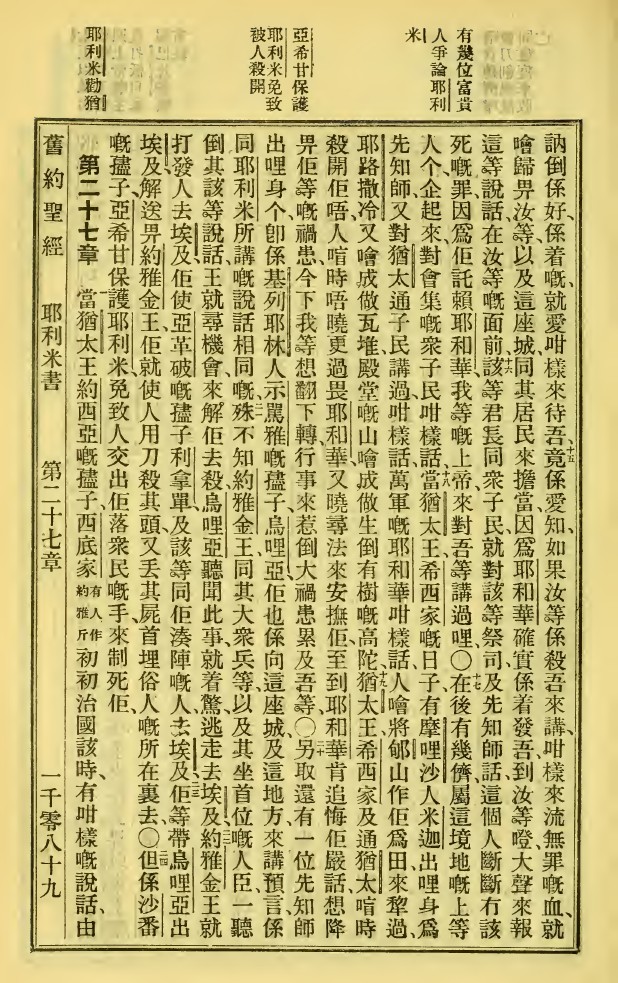 有幾位富貴
人爭論耶利
米
亞希甘保護
耶利米免致
被人殺開
耶利米勸猶
訥倒係好、係着嘅、就愛咁樣來待吾、十五竟係愛知、如果汝等係殺吾來講、咁樣來流無罪嘅血、就
噲歸畀汝等以及這座城、同其居民來擔當、因爲耶和華確實係着發吾到汝等、噔大聲來報
這等說話在汝等嘅面前、十六該等君長同衆子民、就對該等祭司及先知師話、這個人斷斷冇該
死嘅罪、因爲佢託賴耶和華我等嘅上帝、來對吾等講過哩○十七在後有幾儕屬這境地嘅上等
人个企起來、對會集嘅衆子民咁樣話、十八當猶太王希西家嘅日子、有摩哩沙人米迦、出哩身爲
先知師、又對猶太通子民講過咁樣話、萬軍嘅耶和華咁樣話、人噲將郇山作佢爲田來犂過、
耶路撒冷又噲成做瓦堆、殿堂嘅山噲成做生倒有樹嘅高陀、十九猶太王希西家及通猶太、唷時
殺開佢唔人、唷時唔曉更過畏耶和華、又曉尋法來安撫佢、至到耶和華肯追悔佢嚴話想降
畀佢等嘅禍患、今下我等想翻下轉行事、來惹倒大禍患累及吾等○二十另取還有一位先知師
出哩身个、卽係基列耶林人示罵雅嘅孻子、烏哩亞、佢也係向這座城、及這地方、來講預言、係
同耶利米所講嘅說話相同嘅、二一殊不知約雅金王同其大衆兵等、以及其坐首位嘅人臣、一聽
倒其該等說話、王就尋機會來解佢去殺、烏哩亞聽聞此事、就着驚逃走去埃及、二二約雅金王就
打發人去埃及、佢使亞革破嘅孻子利拿單、及該等同佢湊陣嘅人、去埃及、二三佢等帶烏哩亞出
埃及、解送畀約雅金王、佢就使人用刀殺其頭、又丟其屍首埋俗人嘅所在裏去○二四但係沙番
嘅孻子、亞希甘保護耶利米、免致人交出佢落衆民嘅手、來制死佢、
第二十七章 當猶太王約西亞嘅孻子、西底家有人作約雅斤初初治國該時、有咁樣嘅說話、由
舊約聖經 耶利米書 第二十七章 一千零八十九